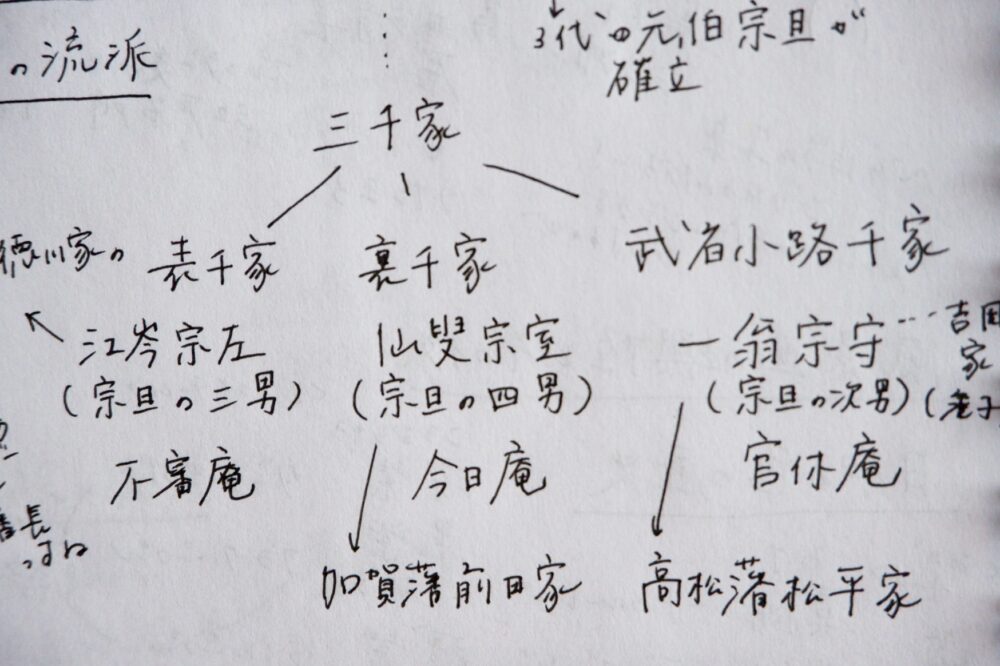 の流派
3代の元伯宗旦が
確立
三千家
徳川家の
表千家
裏千家
武者小路千家
江岑宗左
(宗旦の三男)
仙叟宗室
(宗旦の四男)
一翁宗守…吉岡家
(宗旦の次男)(養子
不審庵
今日庵
官休庵
加賀藩前田家
高松藩松平家